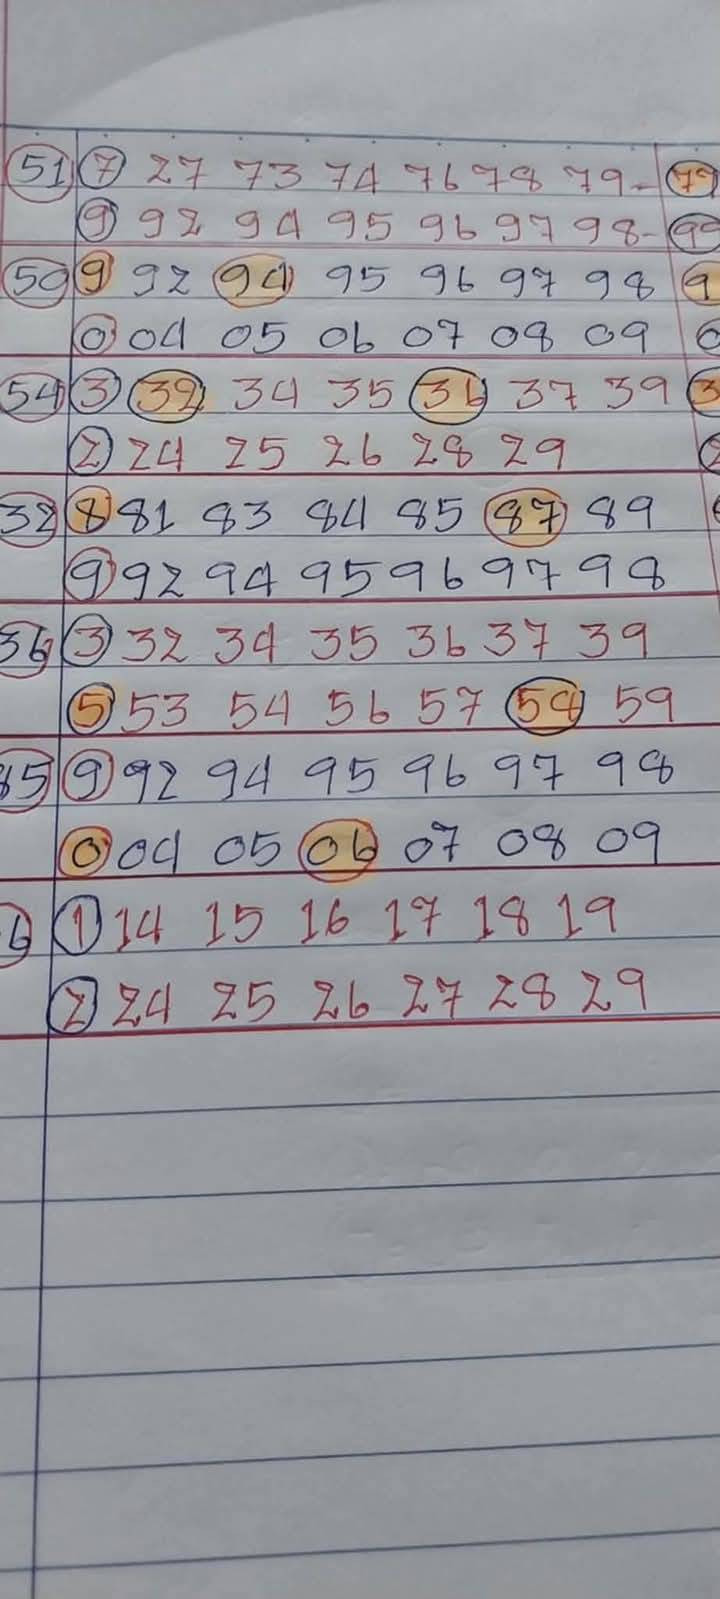 51 7 27 73 74 76 78 79- 77
9 92 94 95 96 97 98- 99
50 9 92 94 95 96 97 98 9
0 04 05 06 07 08 09 0
54 3 32 34 35 36 37 39 3
2 24 25 26 28 29 2
38 8 81 83 84 85 87 89
9 92 94 95 96 97 98
36 3 32 34 35 36 37 39
5 53 54 56 57 58 59
85 9 92 94 95 96 97 98
0 04 05 06 07 08 09
6 1 14 15 16 17 18 19
2 24 25 26 27 28 29